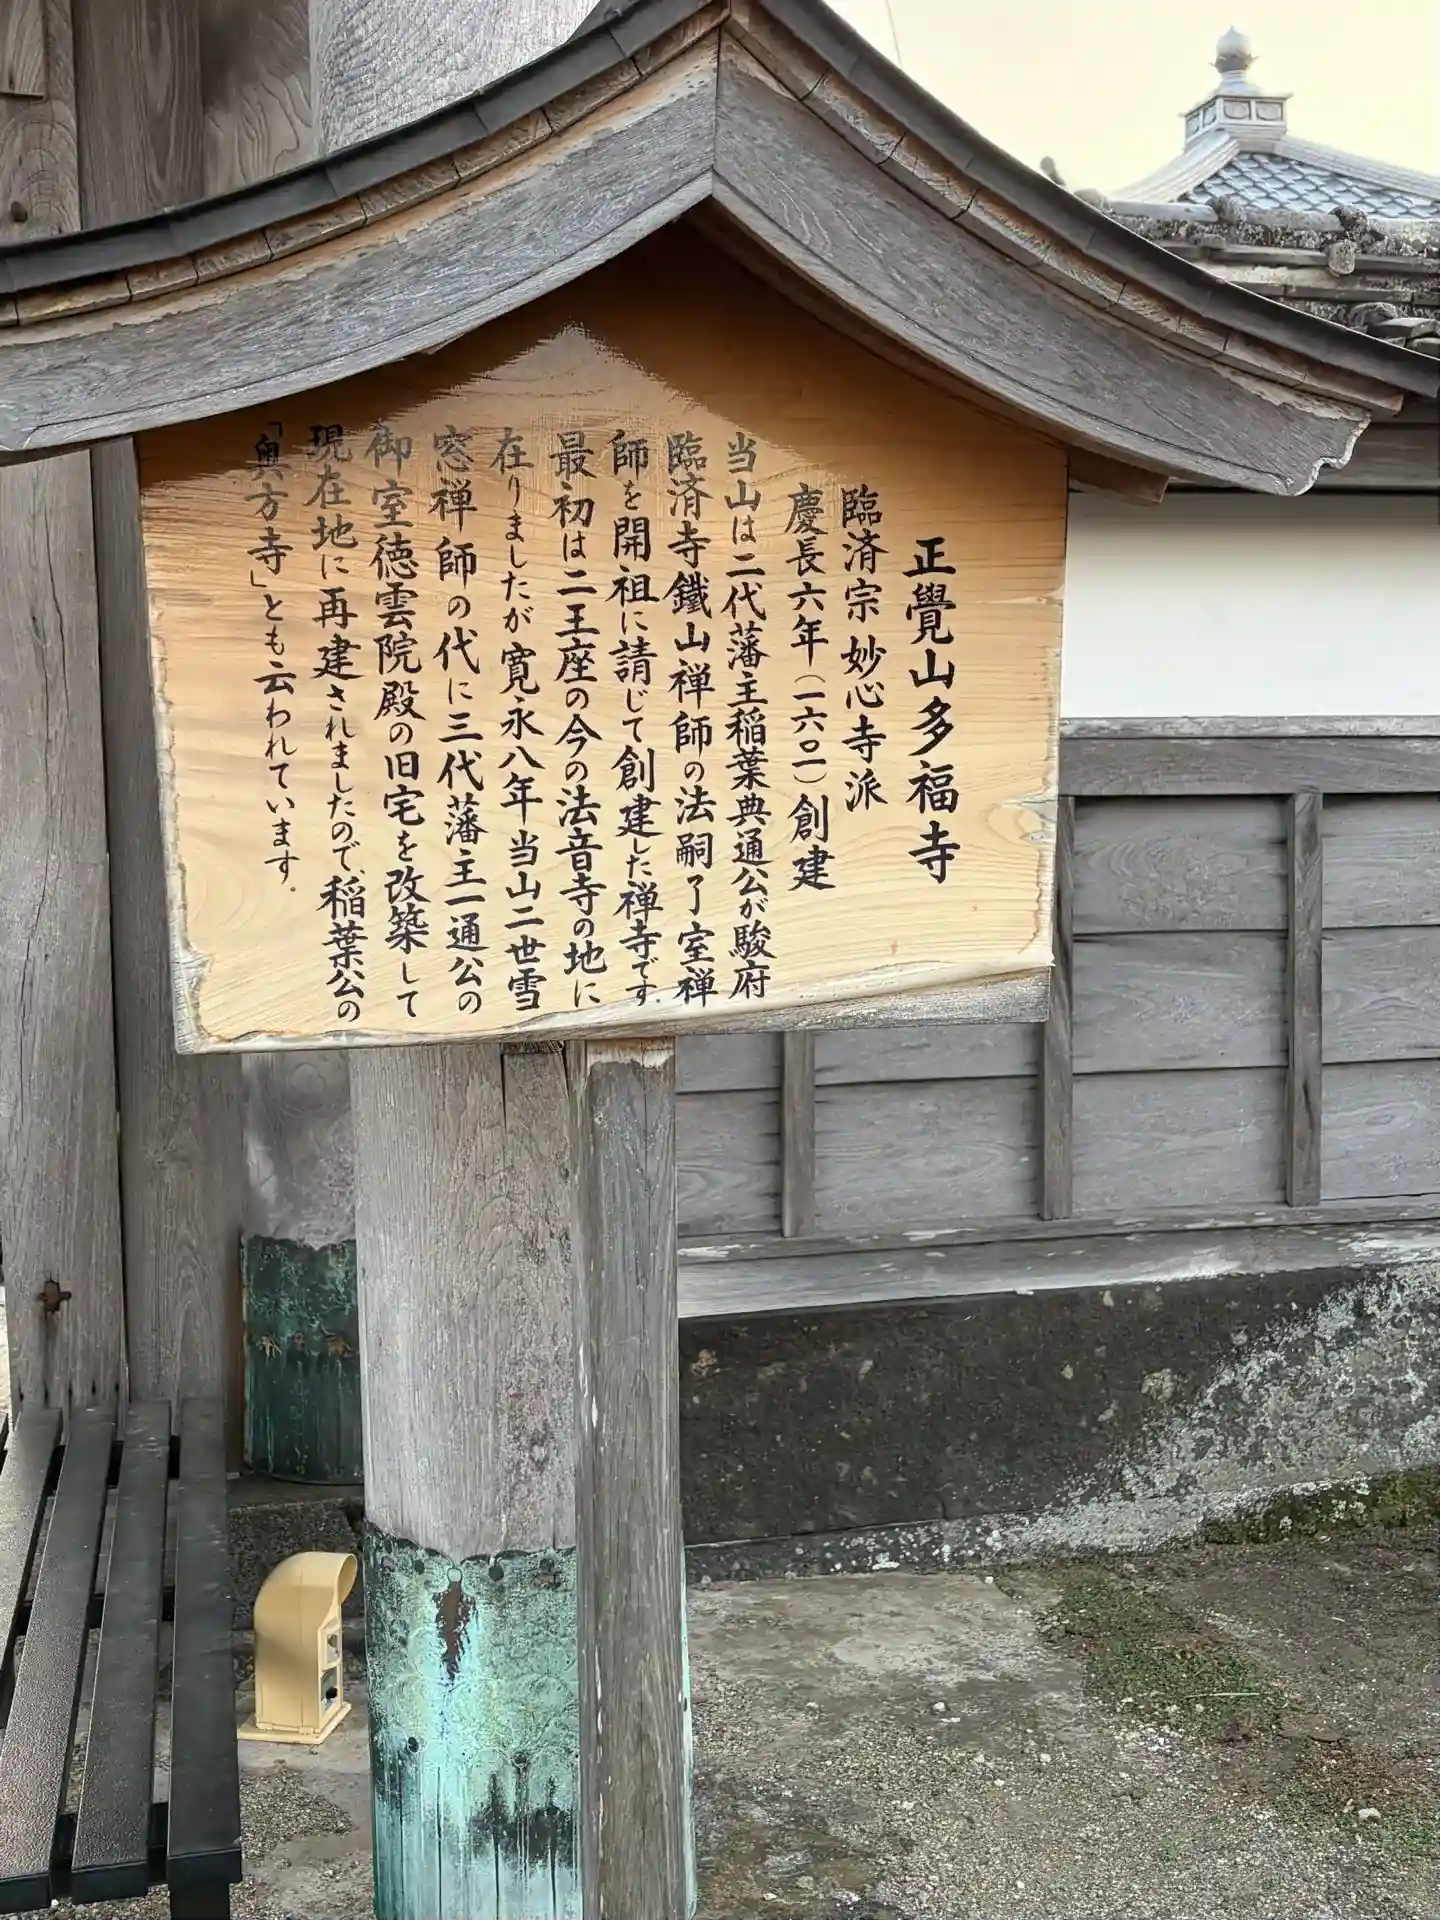 正覺山多福寺
臨済宗妙心寺派
慶長六年（一六〇一）創建
当山は二代藩主稲葉典通公が駿府
臨済寺鐵山禅師の法嗣了室禅
師を開祖に請じて創建した禅寺です。
最初は二王座の今の法音寺の地に
在りましたが寛永八年当山二世雪
窓禅師の代に三代藩主一通公の
御室徳雲院殿の旧宅を改築して
現在地に再建されましたので、稲葉公の
「奥方寺」とも云われています。